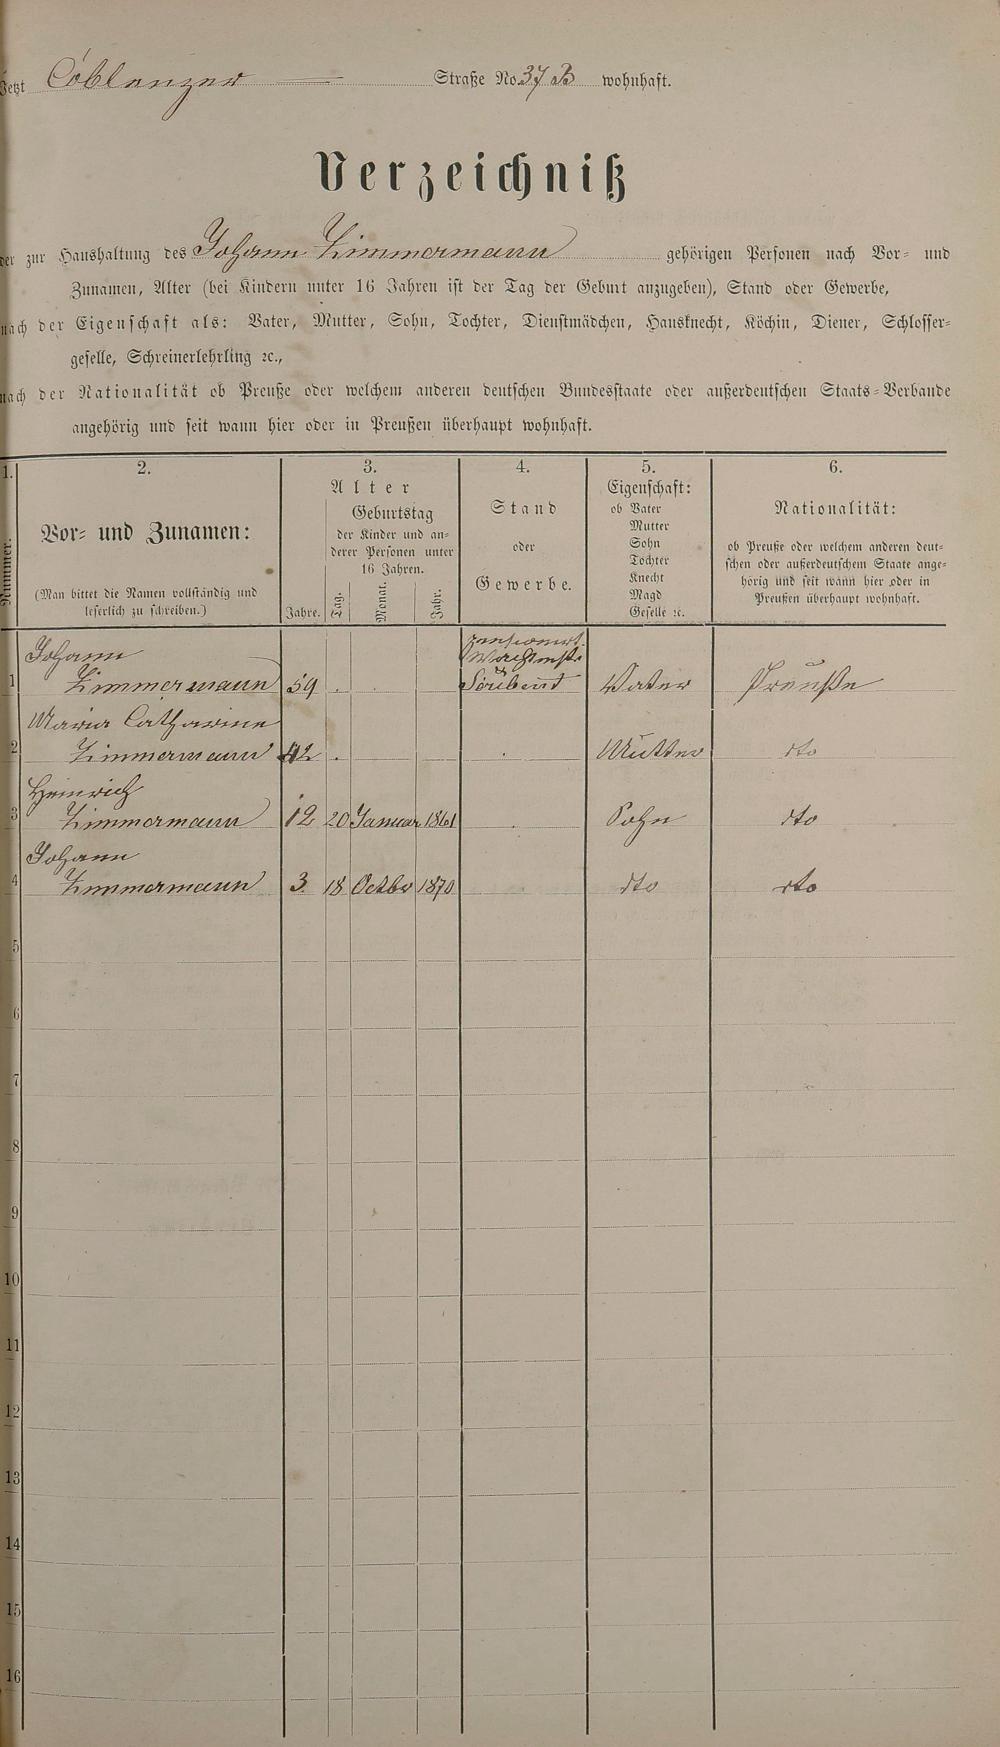 Jetzt Coblenzer Straße No. 37 B wohnhaft.
Verzeichniß
der zur Haushaltung des Johann Zimmermann gehörigen Personen nach Vor- und
Zunamen, Alter (bei Kindern unter 16 Jahren ist der Tag der Geburt anzugeben), Stand oder Gewerbe,
nach der Eigenschaft als: Vater, Mutter, Sohn, Tochter, Dienstmädchen, Hausknecht, Köchin, Diener, Schlosser-
geselle, Schreinerlehrling ꝛc.,
nach der Nationalität ob Preuße oder welchem anderen deutschen Bundesstaate oder außerdeutschen Staats-Verbande
angehörig und seit wann hier oder in Preußen überhaupt wohnhaft.
1. 2. 3. 4. 5. 6.
Nummer.
Vor- und Zunamen:
(Man bittet die Namen vollständig und
leserlich zu schreiben.)
Alter
Jahre.
Geburtstag
der Kinder und an-
derer Personen unter
16 Jahren.
Tag. Monat. Jahr.
Stand
oder
Gewerbe.
Eigenschaft:
ob Vater
Mutter
Sohn
Tochter
Knecht
Magd
Geselle ꝛc.
Nationalität:
ob Preuße oder welchem anderen deut-
schen oder außerdeutschem Staate ange-
hörig und seit wann hier oder in
Preußen überhaupt wohnhaft.
Johann pensionirt.
Wachtmstr.
1 Zimmermann 59 Vater Preuße
Maria Catharine
2 Zimmermann 42 Mutter dto
Heinrich
3 Zimmermann 12 20 Januar 1861 Sohn dto
Johann
4 Zimmermann 3 18 Octbr 1870 dto dto
5
6
7
8
9
10
11
12
13
14
15
16